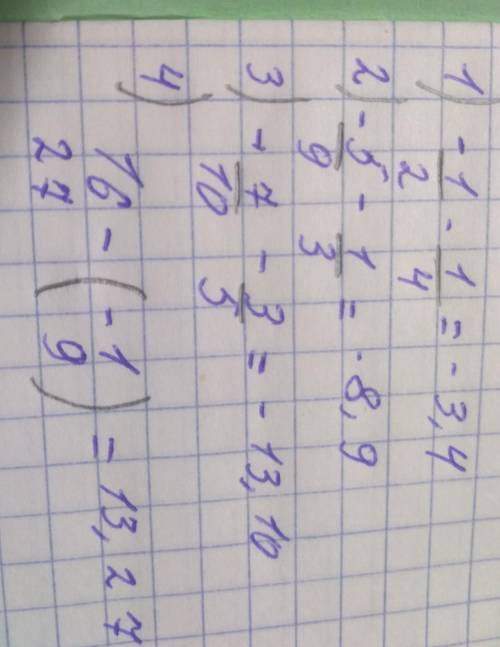 1) -1/2 - 1/4 = -3,4
2) -5/9 - 1/3 = -8,9
3) -7/10 - 3/5 = -13,10
4)
16/27 - (-1/9) = 13,27